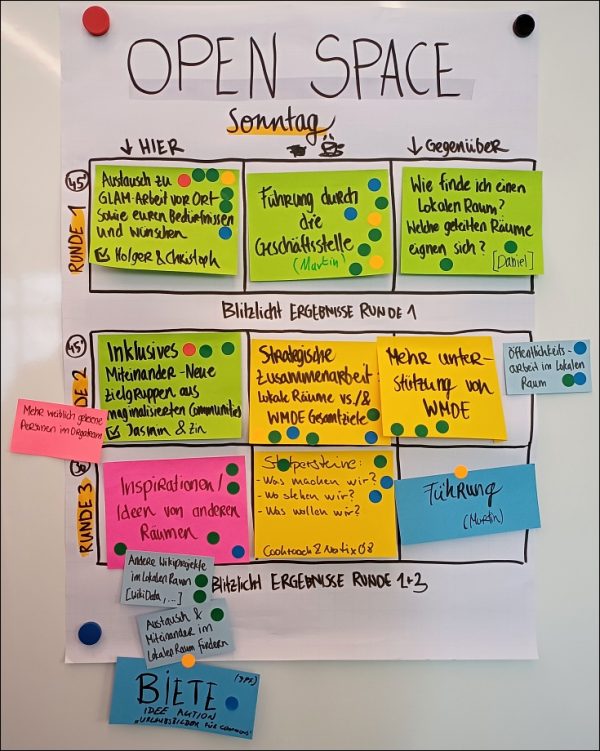 OPEN SPACE
Sonntag
↓ HIER
↓ Gegenüber
45'
RUNDE 1
Austausch zu
GLAM-Arbeit vor Ort
sowie euren Bedürfnissen
und Wünschen
Holger & Christoph
Führung durch
die
Geschäftsstelle
(Martin)
Wie finde ich einen
Lokalen Raum?
Welche geteilten Räume
eignen sich?
[Daniel]
Blitzlicht ERGEBNISSE RUNDE 1
45'
DE 2
Inklusives
Miteinander-Neue
Zielgruppen aus
marginalisierten Communities
Jasmin & Zin
Strategische
Zusammenarbeit
Lokale Räume vs./&
WMDE Gesamtziele
Mehr unter-
stützung von
WMDE
Öffentlichkeits-
arbeit im Lokalen
Raum
Mehr weiblich gelesene
Personen im Orgateam
30'
RUNDE 3
Inspirationen/
Ideen von anderen
Räumen
Stolpersteine:
- Was machen wir?
- Wo stehen wir?
- Was wollen wir?
Führung
(Martin)
Blitzlicht ERGEBNISSE RUNDE 2+3
Andere Wikiprojekte
im Lokalen Raum
[WikiData,...]
Austausch &
Miteinander im
Lokalen Raum fördern
BIETE
IDEE AKTION